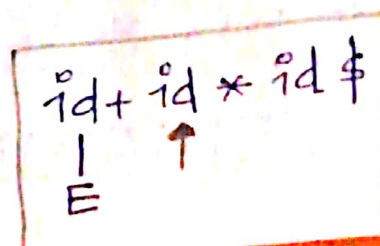 id + id * id $
E